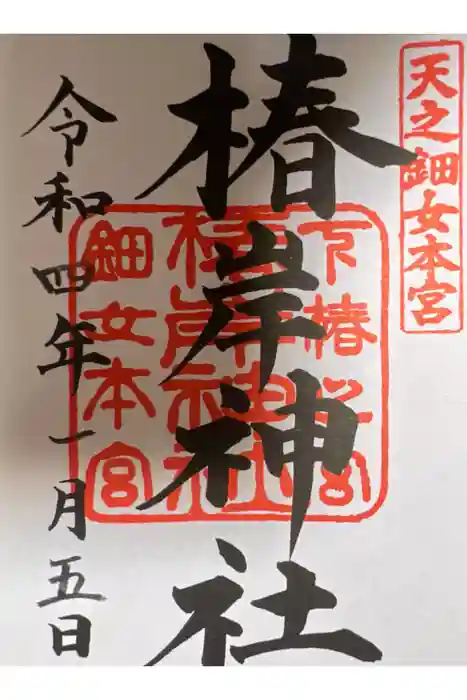 天之鈿女本宮
椿岸神社
下椿
椿岸神社
鈿女本宮
令和四年一月五日